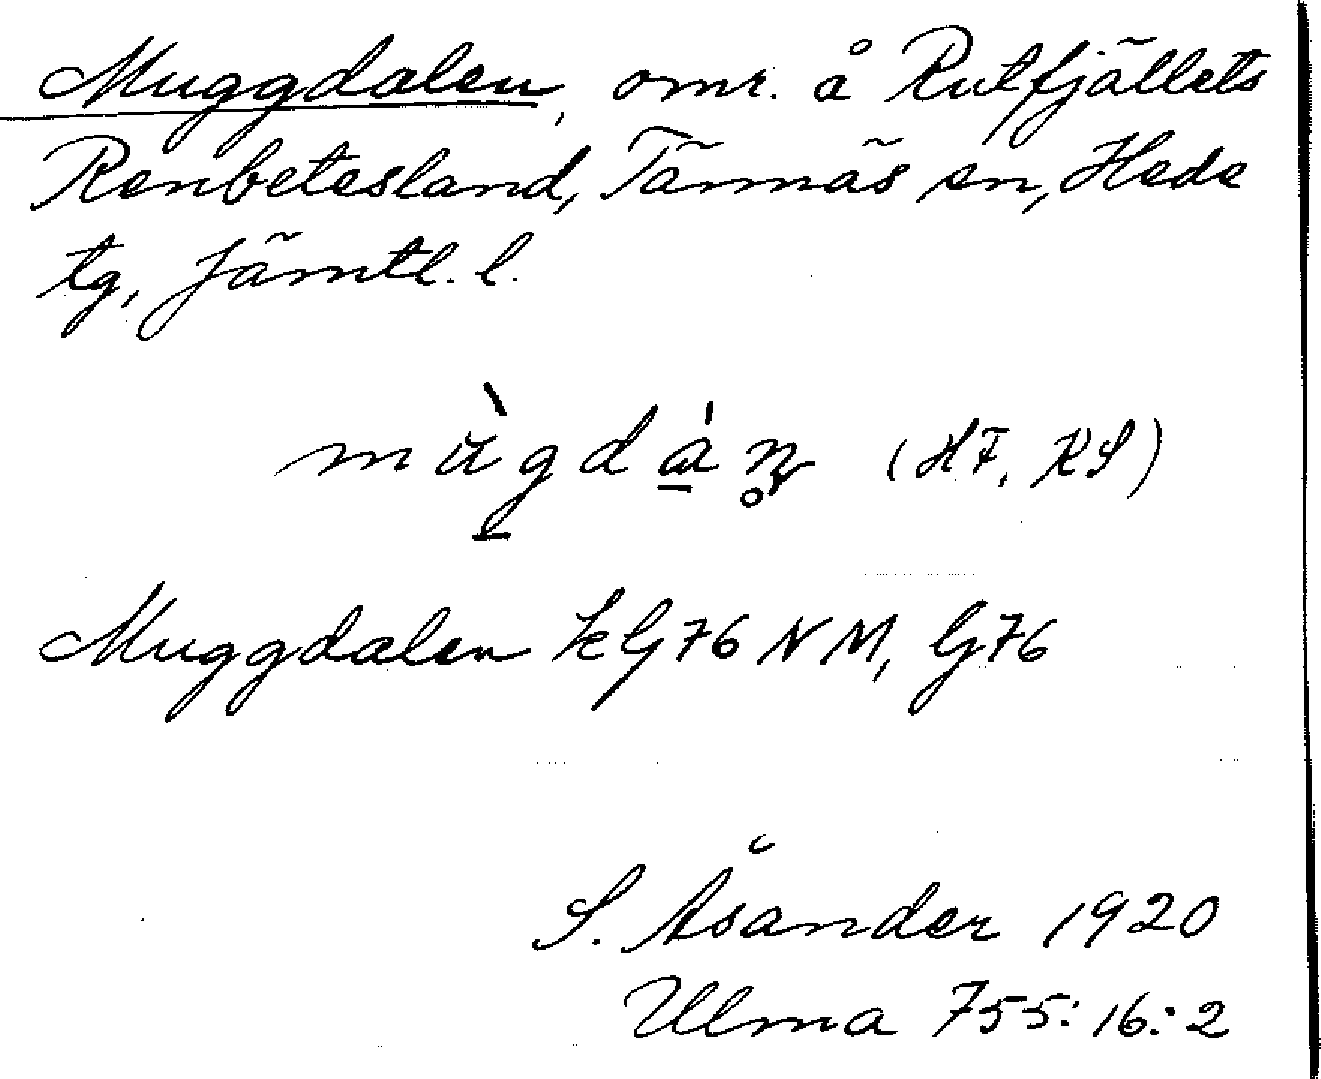 Muggdalen, omr. å Rutfjällets
Renbetesland, Tännäs sn, Hede
tg, Jämtl. l.
(HF, KS)
Muggdalen kG76 NM, G76
S. Åsander 1920
Ulma 755:16:2